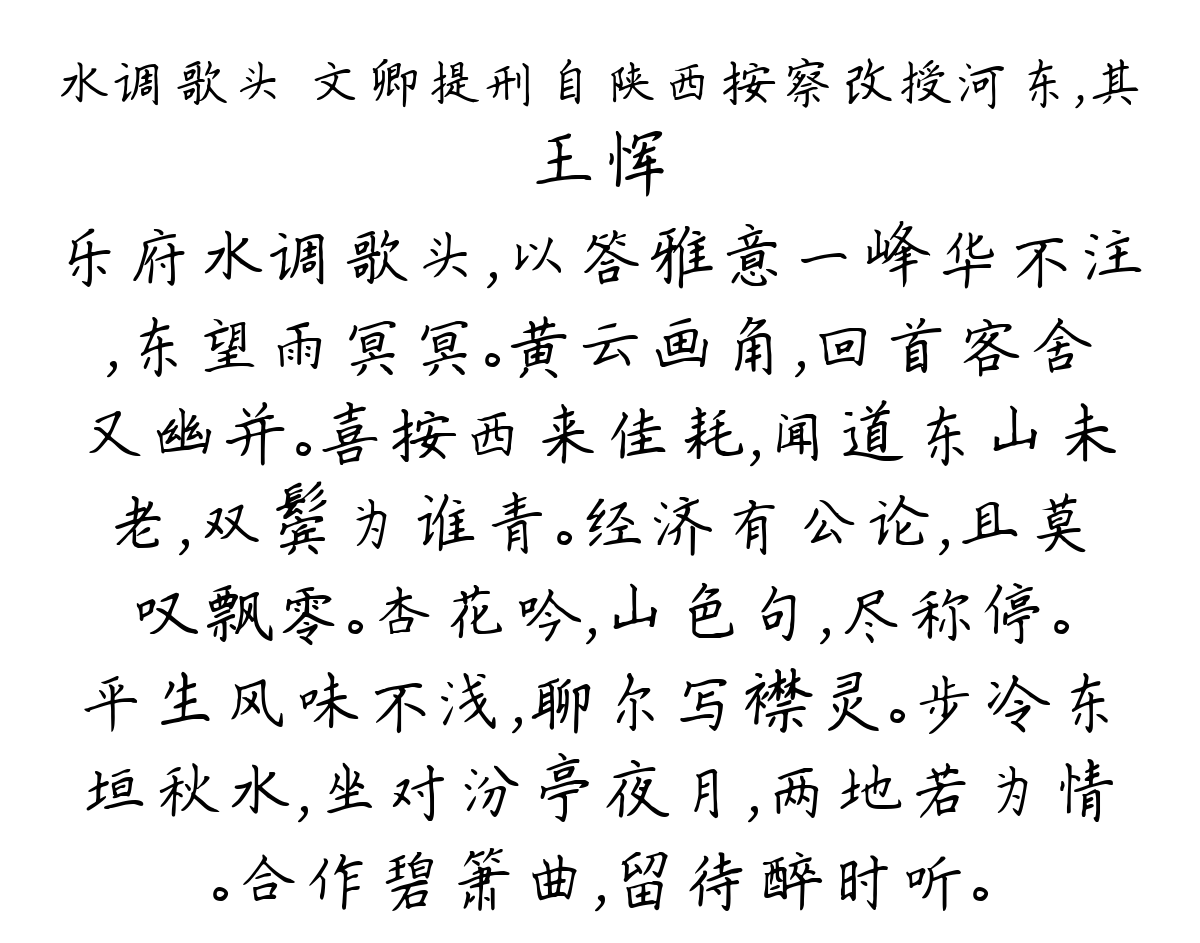 水调歌头 文卿提刑自陕西按察改授河东,其
王恽
乐府水调歌头,以答雅意一峰华不注
,东望雨冥冥。黄云画角,回首客舍
又幽并。喜按西来佳耗,闻道东山未
老,双鬓为谁青。经济有公论,且莫
叹飘零。杏花吟,山色句,尽称停。
平生风味不浅,聊尔写襟灵。步冷东
垣秋水,坐对汾亭夜月,两地若为情
。合作碧箫曲,留待醉时听。